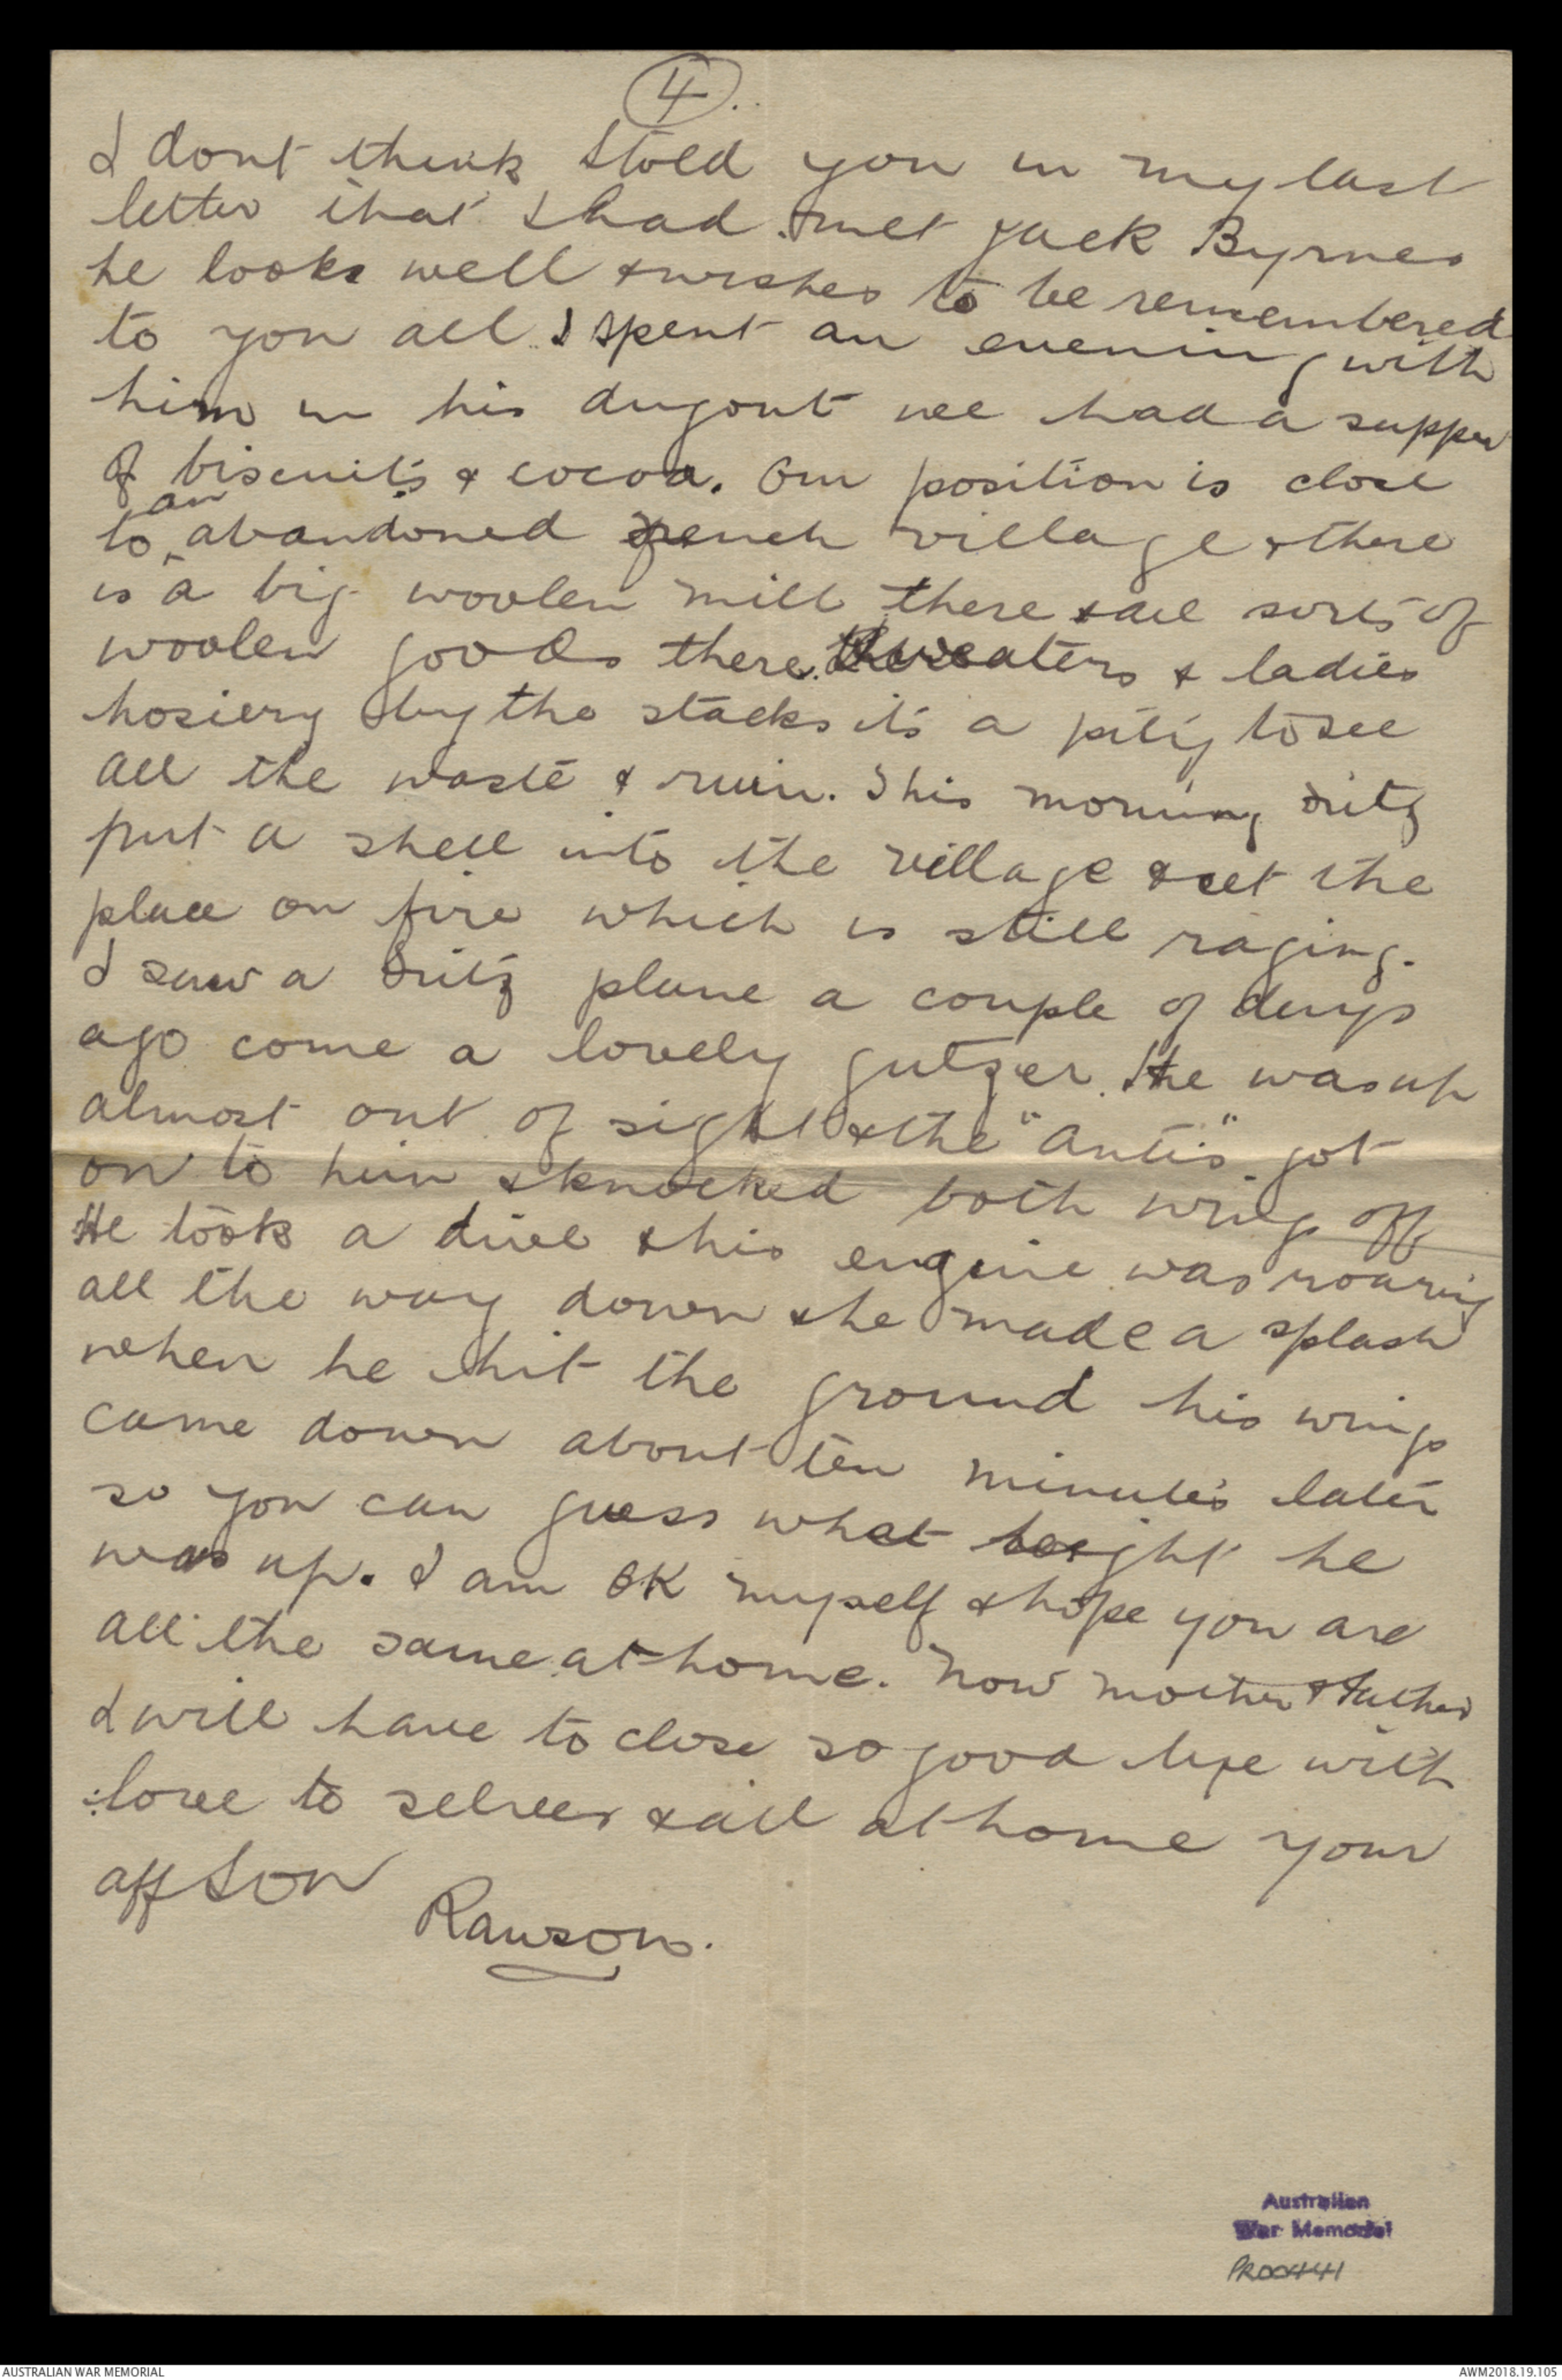 4.
I dont think I told you in my last
letter that I had met Jack Byrnes
he looks well & wishes to be remembered
to you all. I spent an evening with
him in his dugout wee had a supper
of biscuits & cocoa. Our position is close
to an abandoned french village & there
is a big woolen mill there & all sorts of
woolen goods there. Sweaters & ladies
hosiery by the stacks its a pity to see
all the waste & ruin. This morning Fritz
put a shell into the village & set the
place on fire which is still raging.
I saw a Fritz plane a couple of days
ago come a lovely gutzer. He was up
almost out of sight & the "Antis" got
on to him & knocked both wings off
He took a dive & his engine was roaring
all the way down & he made a splash
when he hit the ground his wings
came down about ten minutes later
so you can guess what height he
was up. I am OK myself & hope you are
all the same at home. Now mother & father
I will have to close so good bye with
love to selves & all at home your
aff son
Rawson.
Australian
War Memorial
PR00441
AUSTRALIAN WAR MEMORIAL
AWM2018.19.105